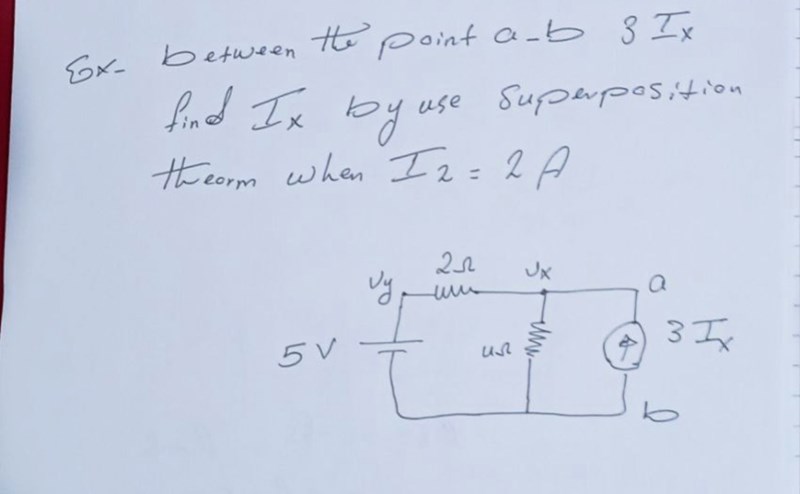 Ex- between the point a-b 3 Ix
find Ix by use superposition
theorm when I2 = 2 A
2Ω
Vy
Vx
a
5 V
4Ω
3 Ix
b